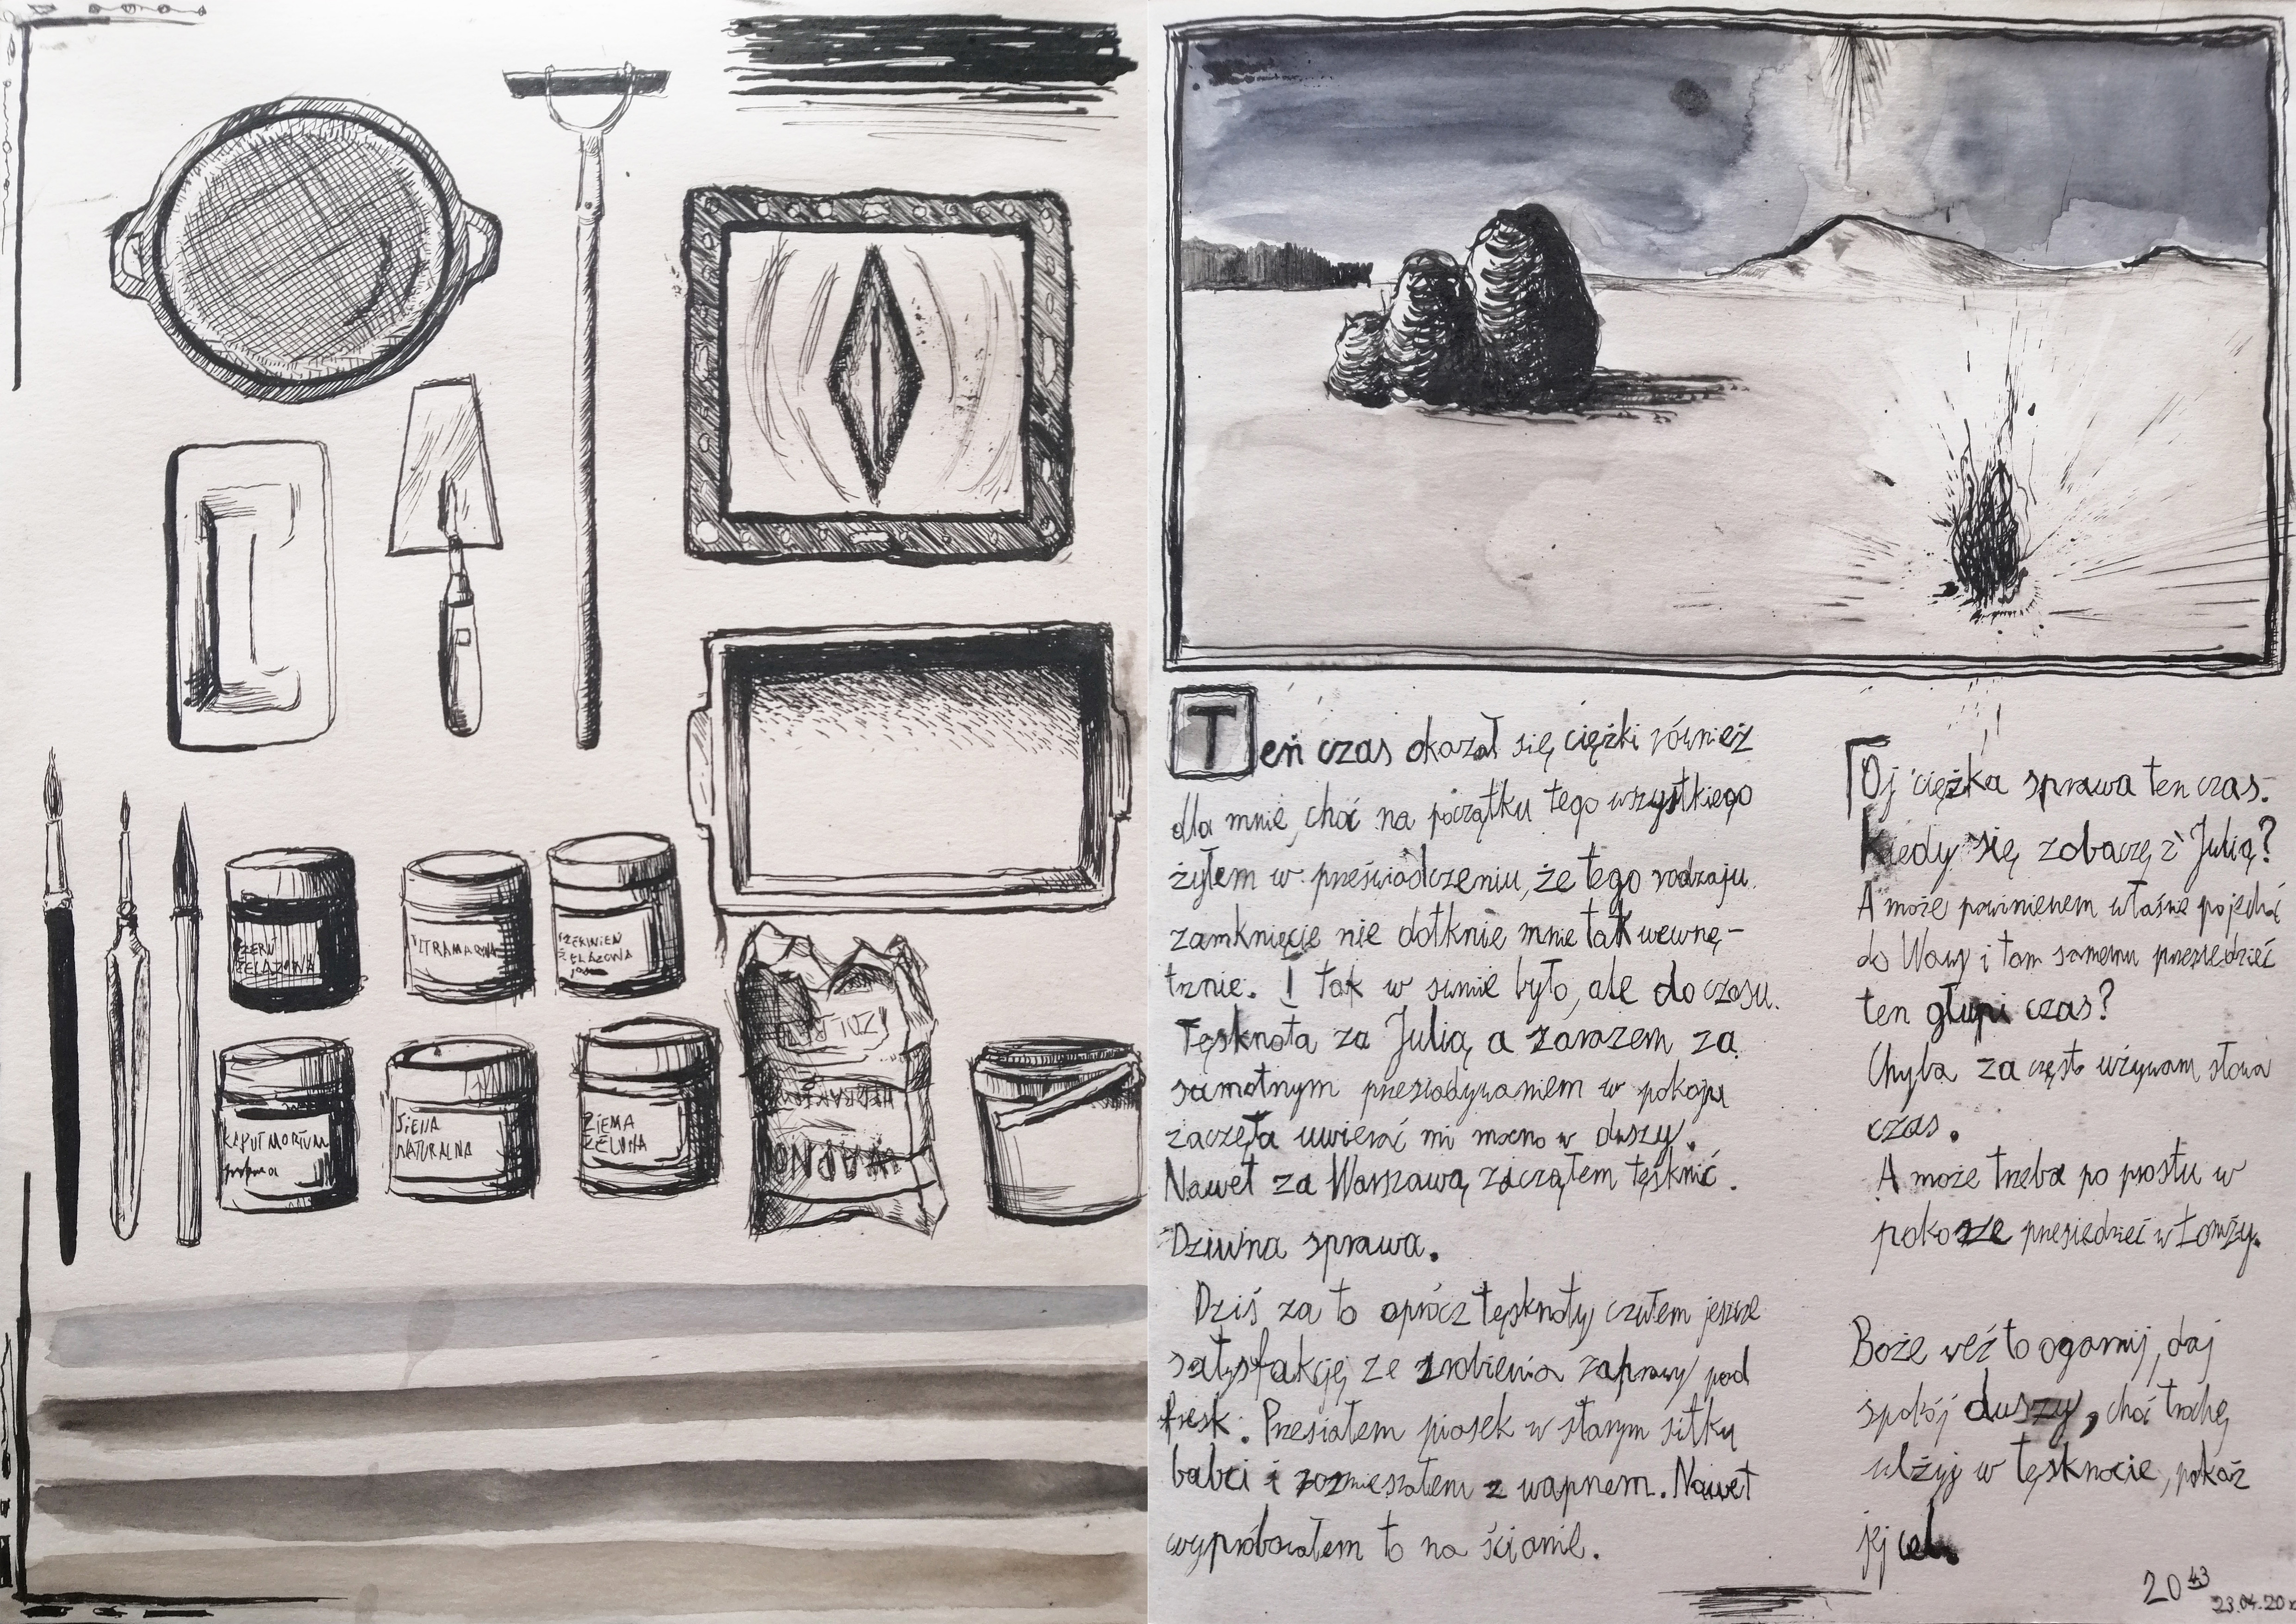 CZERŃ
ŻELAZOWA
ULTRAMARYNA
CZERWIEŃ
ŻELAZOWA
KAPUT MORTUUM
SIENA
NATURALNA
ZIEMA
ZELONA
WAPNO
Ten czas okazał się ciężki również
dla mnie, choć na początku tego wszystkiego
żyłem w przeświadczeniu, że tego rodzaju
zamknięcie nie dotknie mnie tak wewnę-
trznie. I tak w sumie było, ale do czasu.
Tęsknota za Julią a zarazem za
samotnym przesiadywaniem w pokoju
zaczęła uwierać mi mocno w duszy.
Nawet za Warszawą zacząłem tęsknić.
Dziwna sprawa.
Dziś za to oprócz tęsknoty czułem jeszcze
satysfakcję ze zrobienia zaprawy pod
fresk. Przesiałem piasek w starym sitku
babci i rozmieszałem z wapnem. Nawet
wypróbowałem to na ścianie.
Oj ciężka sprawa ten czas.
Kiedy się zobaczę z Julią?
A może powinienem właśnie pojechać
do Wawy i tam samemu przesiedzieć
ten głupi czas?
Chyba za często używam słowa
czas.
A może trzeba po prostu w
pokorze przesiedzieć w Łomży.
Boże weź to ogarnij, daj
spokój duszy, choć trochę
ulżyj w tęsknocie, pokaż
jej cel.
20 43
23.04.20